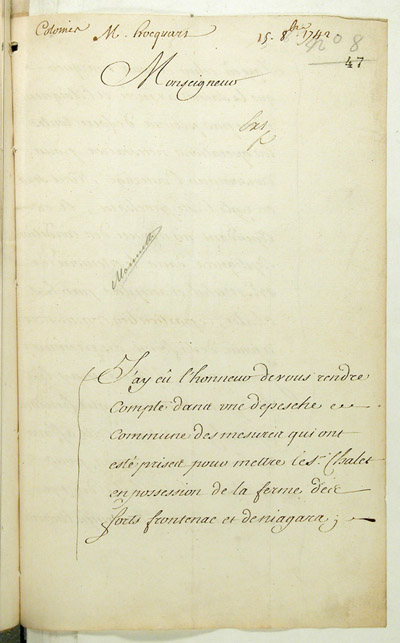 Colonies M. hocquart 15. 8bre. 1742
208
47
Monseigneur
ext
J'ay eû l'honneur de vous rendre
compte dans une depesche
commune des mesures qui ont
esté prises pour mettre le Sr. Chalet
en possession de la ferme des
forts frontenac et de niagara;